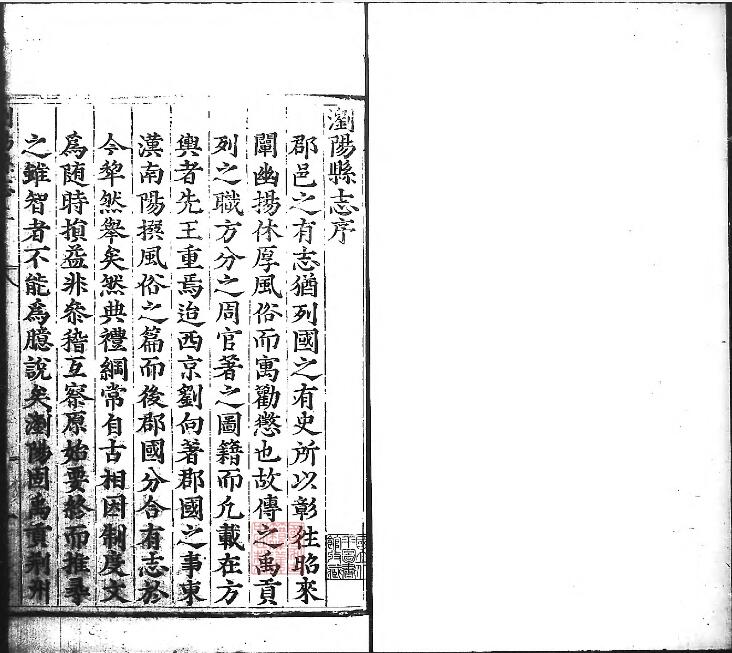 瀏陽縣志序
郡邑之有志猶列國之有史所以彰徃昭來
闡幽揚休厚風俗而寓勸懲也故傳之禹貢
列之職方分之周官著之圖籍而凢載在方
輿者先王重焉迨西京劉向著郡國之事東
漢南陽撰風俗之篇而後郡國分合有志於
今犂然舉矣然典禮綱常自古相因制度文
爲随時損益非叅稽互察原始要終而推尋
之雖智者不能爲臆說矣瀏陽固禹貢荆州